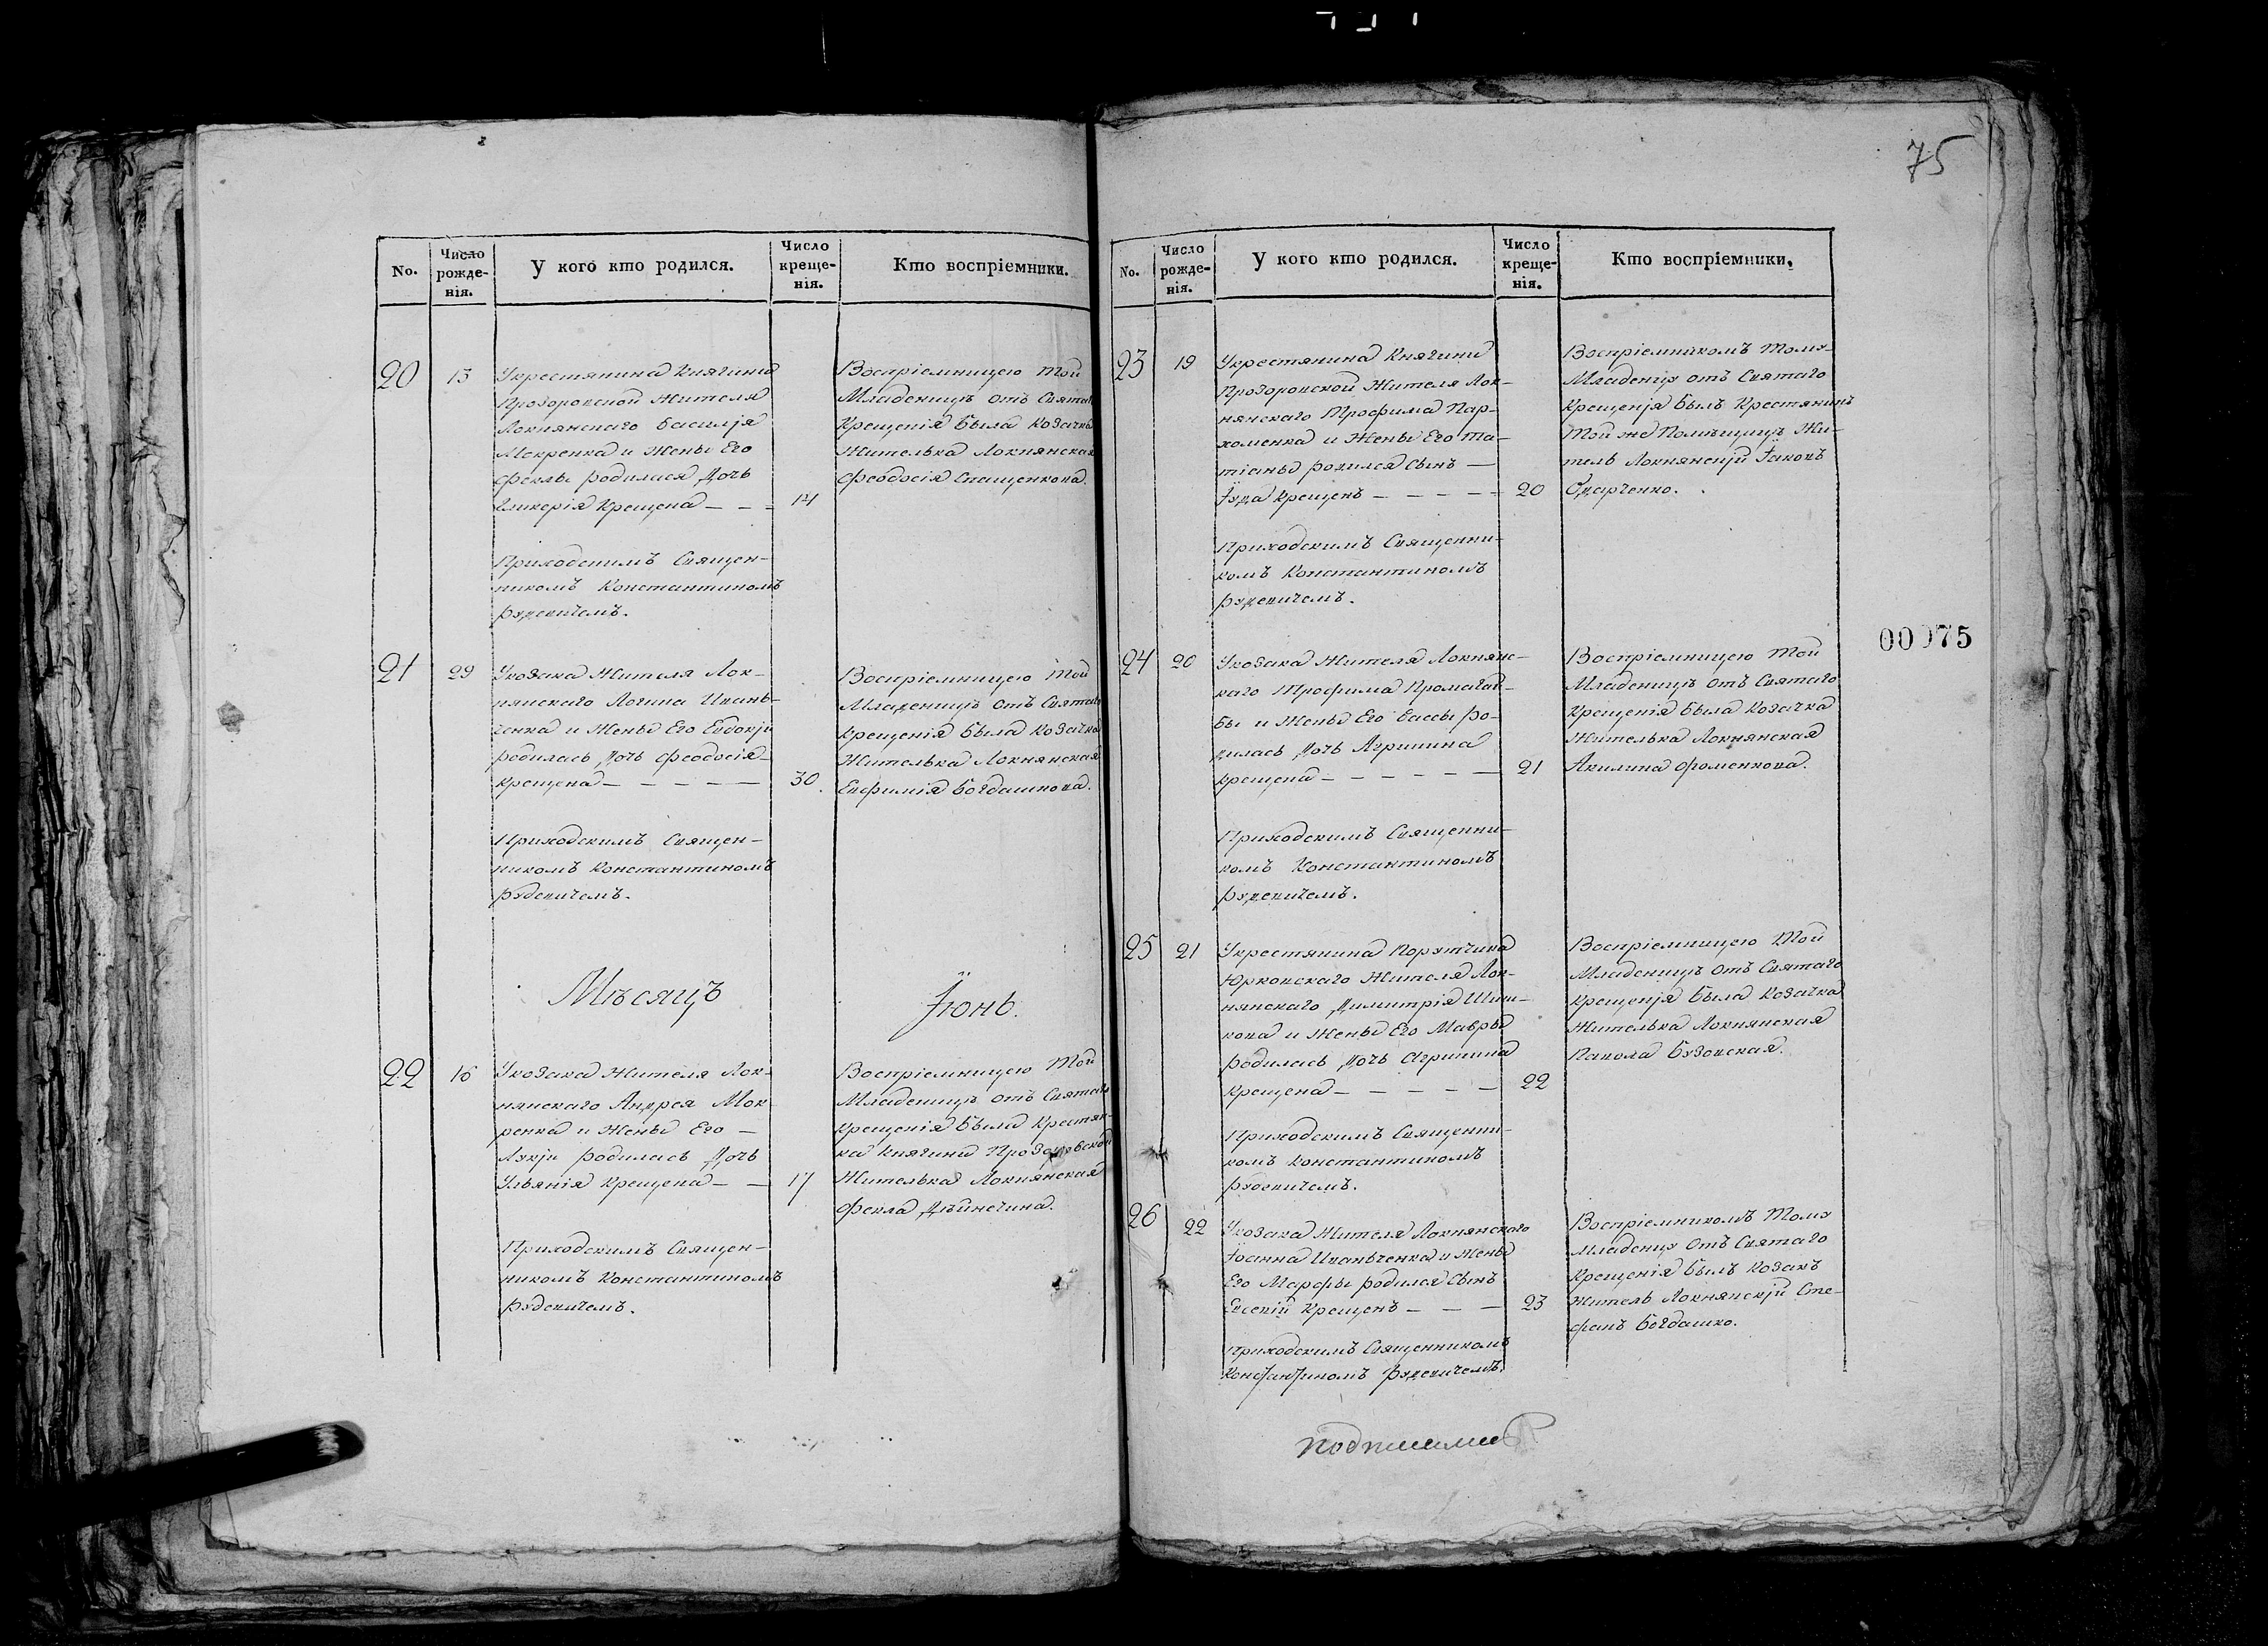 No.
Число рожде-нія.
У кого кто родился.
Число креще-нія.
Кто воспріемники.
20
13
14
Укрестянина Княгини
Прозоровской Жителя
Локнянскаго Василія
Мокренка и Жены Его
Феклы родилася Дочь
Гликерія Крещена — — —
Приходскимъ Священ-
никомъ Константиномъ
Рудевичемъ.
Воспріемницею Той
Младеницѣ отъ Святаго
Крещенія Была Козачка
Жителька Локнянская
Феодосія Спащенкова.
21
29
30.
Укозака Жителя Лок-
нянскаго Логина Ивань-
ченка и Жены Его Евдокіи
родилась Дочь Феодосія
Крещена — — — — —
Приходскимъ Священ-
никомъ Константиномъ
Рудевичемъ.
Воспріемницею Той
Младеницѣ отъ Святаго
Крещенія Была Козачка
Жителька Локнянская
Евфимія Богдашкова.
Мѣсяцъ
Їюнь.
22
16
17
Укозака Жителя Лок-
нянскаго Андрея Мок-
ренка и Жены Его —
Лукіи родилась Дочь
Ульянія Крещена — —
Приходскимъ Священ-
никомъ Константиномъ
Рудевичемъ.
Воспріемницею Той
Младеницѣ отъ Святаго
Крещенія Была Крестян-
ка Княгини Прозоровской
Жителька Локнянская
Фекла Дѣйнечина.
75
No.
Число рожде-нія.
У кого кто родился.
Число креще-нія.
Кто воспріемники.
23
19
20
Укрестянина Княгини
Прозоровской Жителя Лок-
нянскаго Трофима Пар-
хоменка и Жены Его Та-
тіаны родился Сынъ —
Їуда Крещенъ — — — — —
Приходскимъ Священни-
комъ Константиномъ
Рудевичемъ.
Воспріемникомъ Тому
Младенцу отъ Святаго
Крещенія Былъ Крестянинъ
Той же Помѣщицѣ Жи-
тель Локнянскій Їаковъ
Одарченко.
00075
24
20
21
Укозака Жителя Локнянс-
каго Трофима Промагай-
бы и Жены Его Вассы Ро-
дилась Дочь Агрипина
Крещена — — — — — —
Приходскимъ Священни-
комъ Константиномъ
Рудевичемъ.
Воспріемницею Той
Младеницѣ отъ Святаго
Крещенія Была Козачка
Жителька Локнянская
Акилина Фоменкова.
25
21
22
Укрестянина Порутчика
Юрковскаго Жителя Лок-
нянскаго Димитрія
и Жены Его Мавры
родилась Дочь Агрипина
Крещена — — — — —
Приходскимъ Священни-
комъ Константиномъ
Рудевичемъ.
Воспріемницею Той
Младеницѣ отъ Святаго
Крещенія Была Козачка
Жителька Локнянская
Павола Бузовская.
26
22
23
Укозака Жителя Локнянскаго
Їоанна Иваньченка и Жены
Его Марфы родился Сынъ
Евсевій Крещенъ — — —
Приходскимъ Священникомъ
Константиномъ Рудевичемъ.
Воспріемникомъ Тому
Младенцу отъ Святаго
Крещенія Былъ Козакъ
Житель Локнянскій Сте-
фанъ Богдашко.